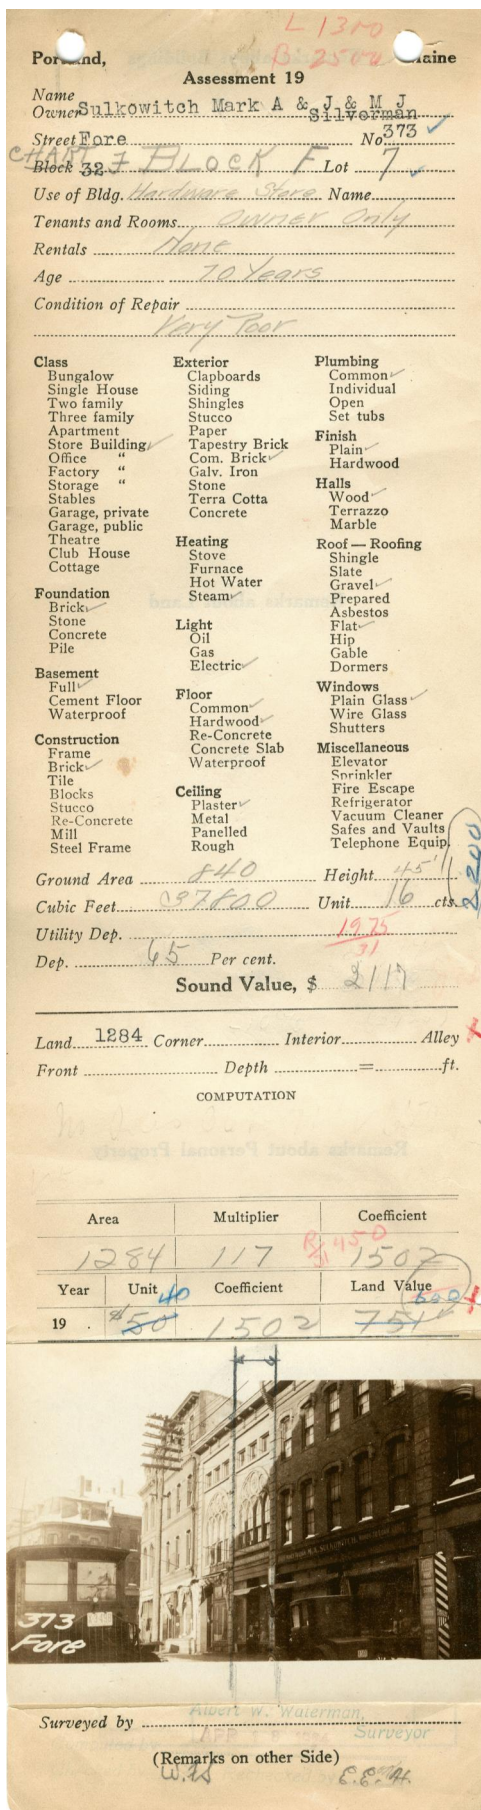 L 1300
B 2500
Portland, Maine
Assessment 19
Name
Owner Sulkowitch Mark A & J & M J
Silverman
Street Fore No. 373
CHART 7 BLOCK F
Block 32 Lot 7
Use of Bldg. Hardware Store Name
Tenants and Rooms Owner Only
Rentals None
Age 70 Years
Condition of Repair
Very Poor
Class
Bungalow
Single House
Two family
Three family
Apartment
Store Building ✓
Office "
Factory "
Storage "
Stables
Garage, private
Garage, public
Theatre
Club House
Cottage
Foundation
Brick ✓
Stone
Concrete
Pile
Basement
Full ✓
Cement Floor
Waterproof
Construction
Frame
Brick ✓
Tile
Blocks
Stucco
Re-Concrete
Mill
Steel Frame
Exterior
Clapboards
Siding
Shingles
Stucco
Paper
Tapestry Brick
Com. Brick ✓
Galv. Iron
Stone
Terra Cotta
Concrete
Heating
Stove
Furnace
Hot Water
Steam ✓
Light
Oil
Gas
Electric ✓
Floor
Common ✓
Hardwood ✓
Re-Concrete
Concrete Slab
Waterproof
Ceiling
Plaster ✓
Metal
Panelled
Rough
Plumbing
Common ✓
Individual
Open
Set tubs
Finish
Plain ✓
Hardwood
Halls
Wood ✓
Terrazzo
Marble
Roof — Roofing
Shingle
Slate
Gravel ✓
Prepared
Asbestos
Flat ✓
Hip
Gable
Dormers
Windows
Plain Glass ✓
Wire Glass
Shutters
Miscellaneous
Elevator
Sprinkler
Fire Escape
Refrigerator
Vacuum Cleaner
Safes and Vaults
Telephone Equip.
2200
Ground Area 840 Height 45'
Cubic Feet 37800 Unit 16 cts.
Utility Dep. 1975
31
Dep. 65 Per cent.
Sound Value, $ 2117
Land 1284 Corner Interior Alley
Front Depth = ft.
COMPUTATION
Area Multiplier Coefficient
1284 117 1502
R/31 450
Year Unit Coefficient Land Value
40 600
19 $50 1502 751
373
Fore
Albert W. Waterman,
Surveyed by APR Surveyor
(Remarks on other Side)
W.FS E.E.H.